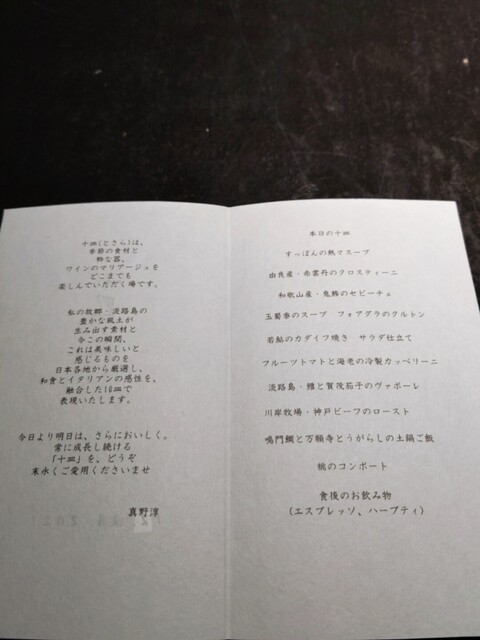 十皿(とさら)は、
季節の食材と
粋な器、
ワインのマリアージュを
どこまでも
楽しんでいただく場です。
私の故郷・淡路島の
豊かな風土が
生み出す素材と
今この瞬間、
これは美味しいと
感じるものを
日本各地から厳選し、
和食とイタリアンの感性を、
融合した10皿で
表現いたします。
今日より明日は、さらにおいしく。
常に成長し続ける
「十皿」を、どうぞ
末永くご愛用くださいませ
真野淳
本日の十皿
すっぽんの熱々スープ
由良産・赤雲丹のクロスティーニ
和歌山産・鬼鯵のセビーチェ
玉蜀黍のスープ フォアグラのクルトン
若鮎のカダイフ焼き サラダ仕立て
フルーツトマトと海老の冷製カッペリーニ
淡路島・鱧と賀茂茄子のヴァポーレ
川岸牧場・神戸ビーフのロースト
鳴門鯛と万願寺とうがらしの土鍋ご飯
桃のコンポート
食後のお飲み物
(エスプレッソ、ハーブティ)